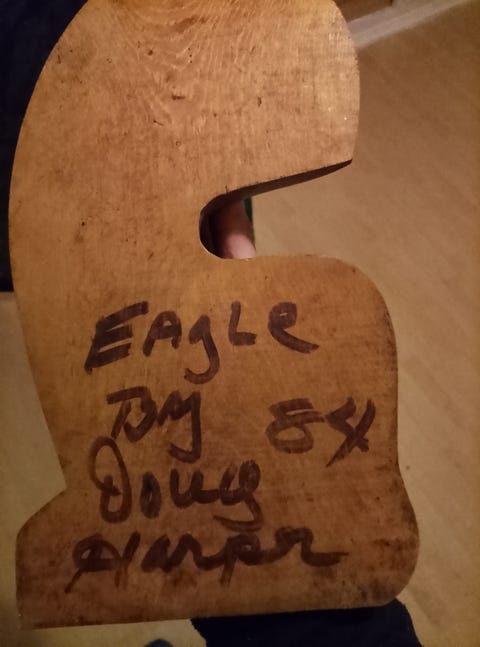 EAgLe
By 84
Doug
Harper